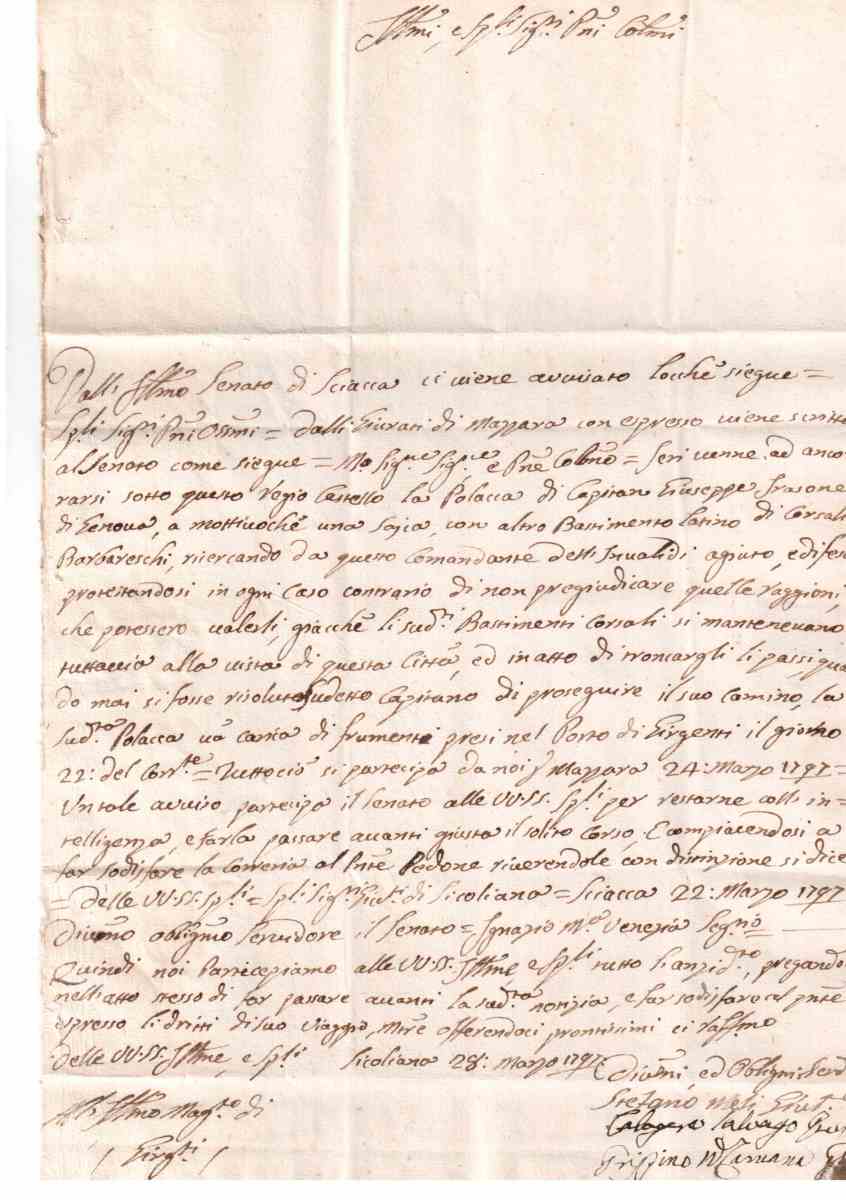 Illmi, e Spli Sigri Pni Colmi
Dalli Illmo Senato di Sciacca ci viene avvisato locchè siegue =
Spli Sigri Pni Ossmi = dalli Giurati di Mazzara con espresso viene scritto
al Senato come siegue = e Pne Colmo = Jeri venne ad anco
rarsi sotto questo regio Castello la Polacca di Capitan Giuseppe Frasone
di Genova, a mottivochè una Sajca, con altro Bastimento latino di Corsali
Barbareschi, ricercando da questo Comandante dell'Invalidi agiuto, e difesa
protestandosi in ogni caso contrario di non pregiudicare quelle raggioni,
che potessero valerli, giacchè li sudti Bastimenti Corsali si mantenevano
tuttavia alla vista di questa Città, ed in atto di troncargli li passi, qua
do mai si fosse risoluto sudetto Capitano di proseguire il suo Camino, la
sudta Polacca va carica di frumenti presi nel Porto di Girgenti il giorno
22: del Corrte = Tuttociò si partecipa da noi Mazzara 24: Marzo 1797 =
Un tale avviso partecipa il Senato alle VV.SS. Spli per restarne colli in=
telligenza, e farla passare avanti giusta il solito Corso, E compiacendosi a
far sodisfare la Correria al Pnte Pedone riverendole con distinzione si dice
= delle VV.SS. Spli = Spli Sigri Giuti di Sicoliana = Sciacca 22: Marzo 1797
Divmo obligmo Servidore il Senato = Ignazio Mo Venezia Segrio
Quindi noi Partecipiamo alle VV.SS. Illme e Spli tutto l'anzidto, pregando
nell'atto stesso di far passare avanti la sudta notizia, e far sodisfare al pnte
espresso li dritti di suo viaggio, mtre offerendoci prontissimi ci raffmo
delle VV.SS. Illme, e Spli Sicoliana 28: Marzo 1797:
Divmi, ed Obligmi Serd
Stefano Meli Giuto
Calogero Salvago
Crispino Caruana
All' Illmo Magto di
/ Girgti /